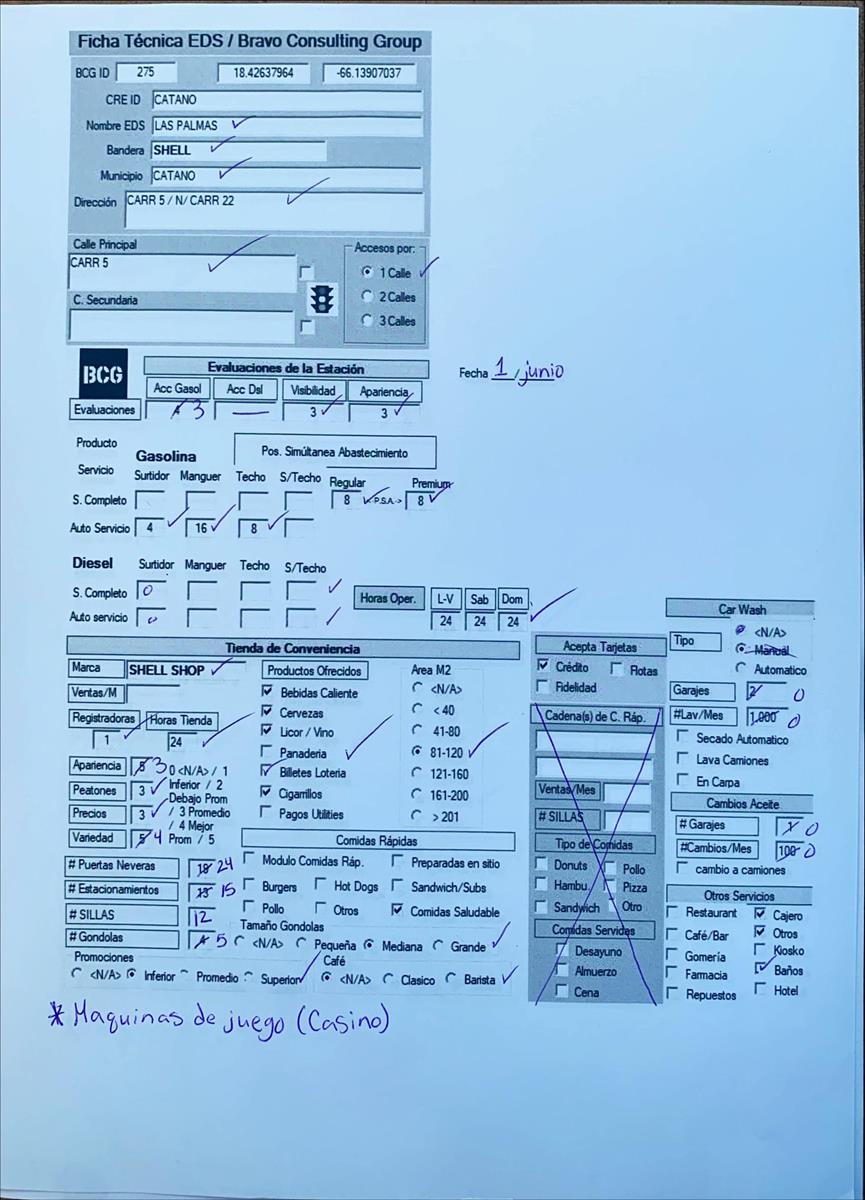 Ficha Técnica EDS / Bravo Consulting Group
BCG ID 275 18.42637964 -66.13907037
CRE ID CATANO
Nombre EDS LAS PALMAS
Bandera SHELL
Municipio CATANO
Dirección CARR 5 / N/ CARR 22
Calle Principal
CARR 5
C. Secundaria
Accesos por:
1 Calle
2 Calles
3 Calles
BCG
Evaluaciones de la Estación
Fecha 1 / junio
Acc Gasol Acc Dsl Visibilidad Apariencia
Evaluaciones 3 — 3 3
Producto
Servicio
Gasolina
Pos. Simúltanea Abastecimiento
Surtidor Manguer Techo S/Techo Regular Premium
S. Completo 8 P.S.A.-> 8
Auto Servicio 4 16 8
Diesel Surtidor Manguer Techo S/Techo
S. Completo 0
Auto servicio 0
Horas Oper. L-V Sab Dom
24 24 24
Tienda de Conveniencia
Marca SHELL SHOP
Ventas/M
Registradoras Horas Tienda
1 24
Apariencia 3
Peatones 3
Precios 3
Variedad 5 4
0 <N/A> / 1
Inferior / 2
Debajo Prom
/ 3 Promedio
/ 4 Mejor
Prom / 5
Productos Ofrecidos
Bebidas Caliente
Cervezas
Licor / Vino
Panaderia
Billetes Loteria
Cigarrillos
Pagos Utilities
Area M2
<N/A>
< 40
41-80
81-120
121-160
161-200
> 201
# Puertas Neveras 18 24
# Estacionamientos 15
# SILLAS 12
# Gondolas 5
Comidas Rápidas
Modulo Comidas Ráp. Preparadas en sitio
Burgers Hot Dogs Sandwich/Subs
Pollo Otros Comidas Saludable
Tamaño Gondolas
<N/A> Pequeña Mediana Grande
Promociones
<N/A> Inferior Promedio Superior
Café
<N/A> Clasico Barista
Acepta Tarjetas
Crédito Flotas
Fidelidad
Cadena(s) de C. Ráp.
Ventas/Mes
# SILLAS
Tipo de Comidas
Donuts Pollo
Hambu. Pizza
Sandwich Otro
Comidas Servides
Desayuno
Almuerzo
Cena
Car Wash
Tipo <N/A>
Manual
Automatico
Garajes 2 0
#Lav/Mes 1,000 0
Secado Automatico
Lava Camiones
En Carpa
Cambios Aceite
# Garajes 1 0
#Cambios/Mes 100 0
cambio a camiones
Otros Servicios
Restaurant Cajero
Café/Bar Otros
Gomería Kiosko
Farmacia Baños
Repuestos Hotel
* Maquinas de juego (Casino)